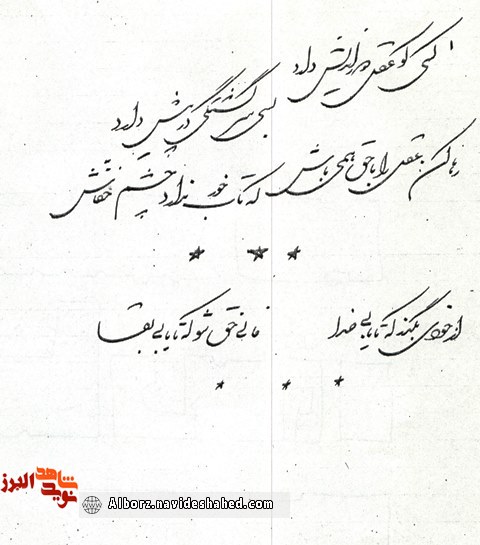 کسی کو عقل دوراندیش دارد
بسی سرگشتگی در پیش دارد
رها کن عقل را با حق همی باش
که تاب خور ندارد چشم خفاش
از خودی بگذر که تا یابی خدا
فانی حق شو که تا یابی بقا
نوید شاهد البرز
Alborz.navideshahed.com